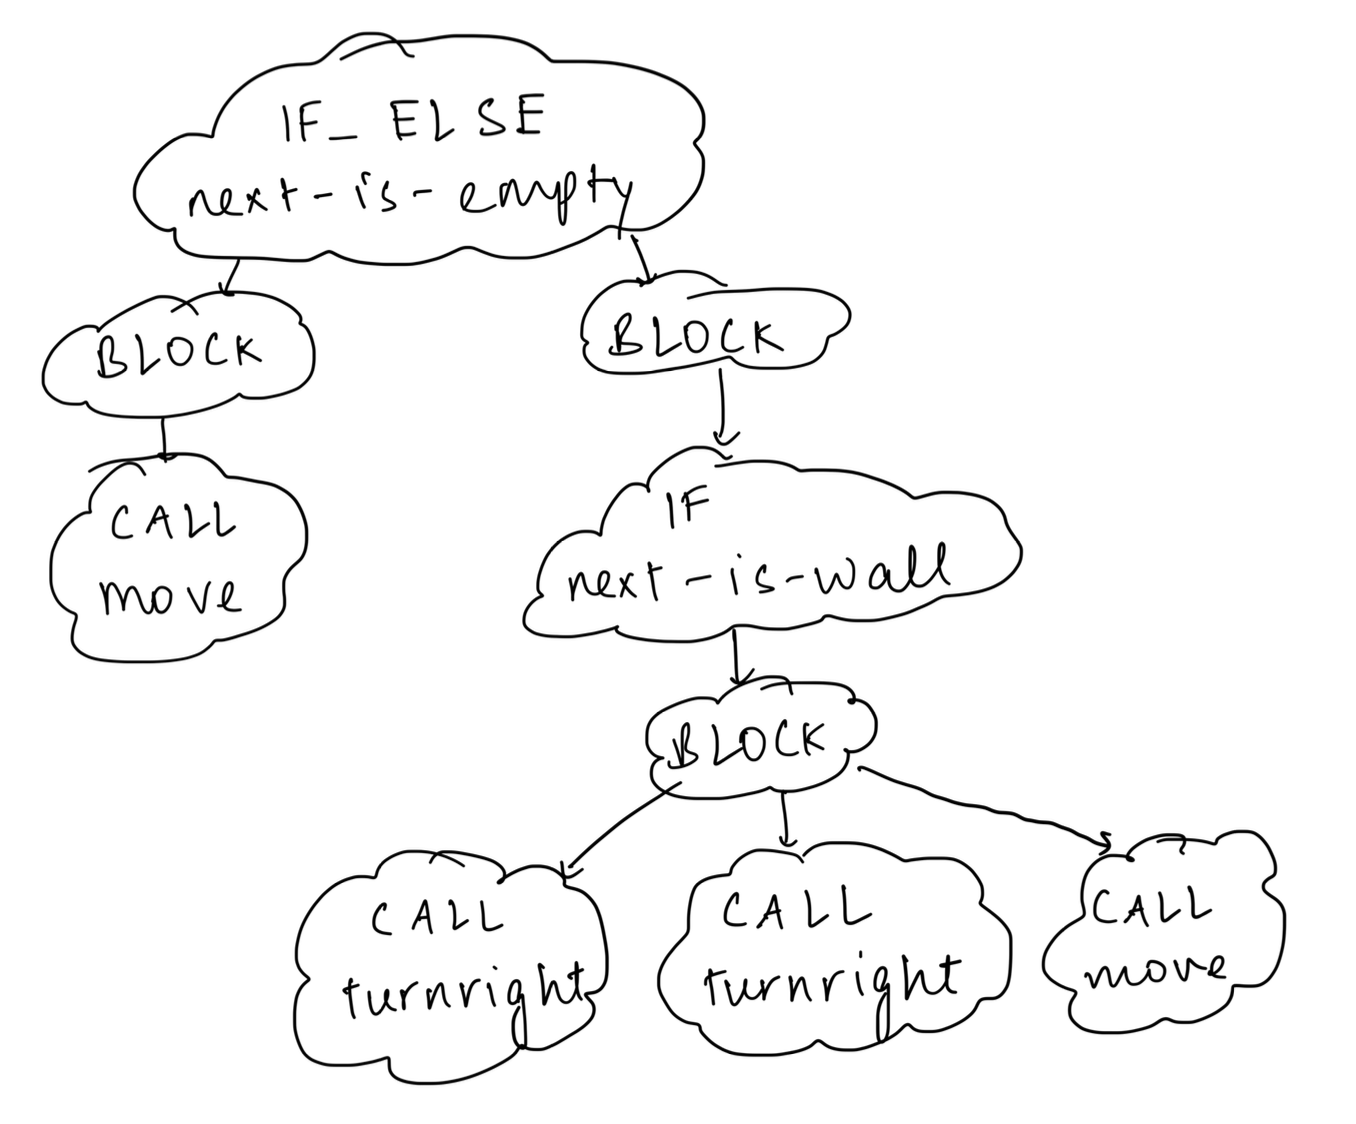 IF_ELSE
next-is-empty
BLOCK
BLOCK
CALL
move
IF
next-is-wall
BLOCK
CALL
turnright
CALL
turnright
CALL
move